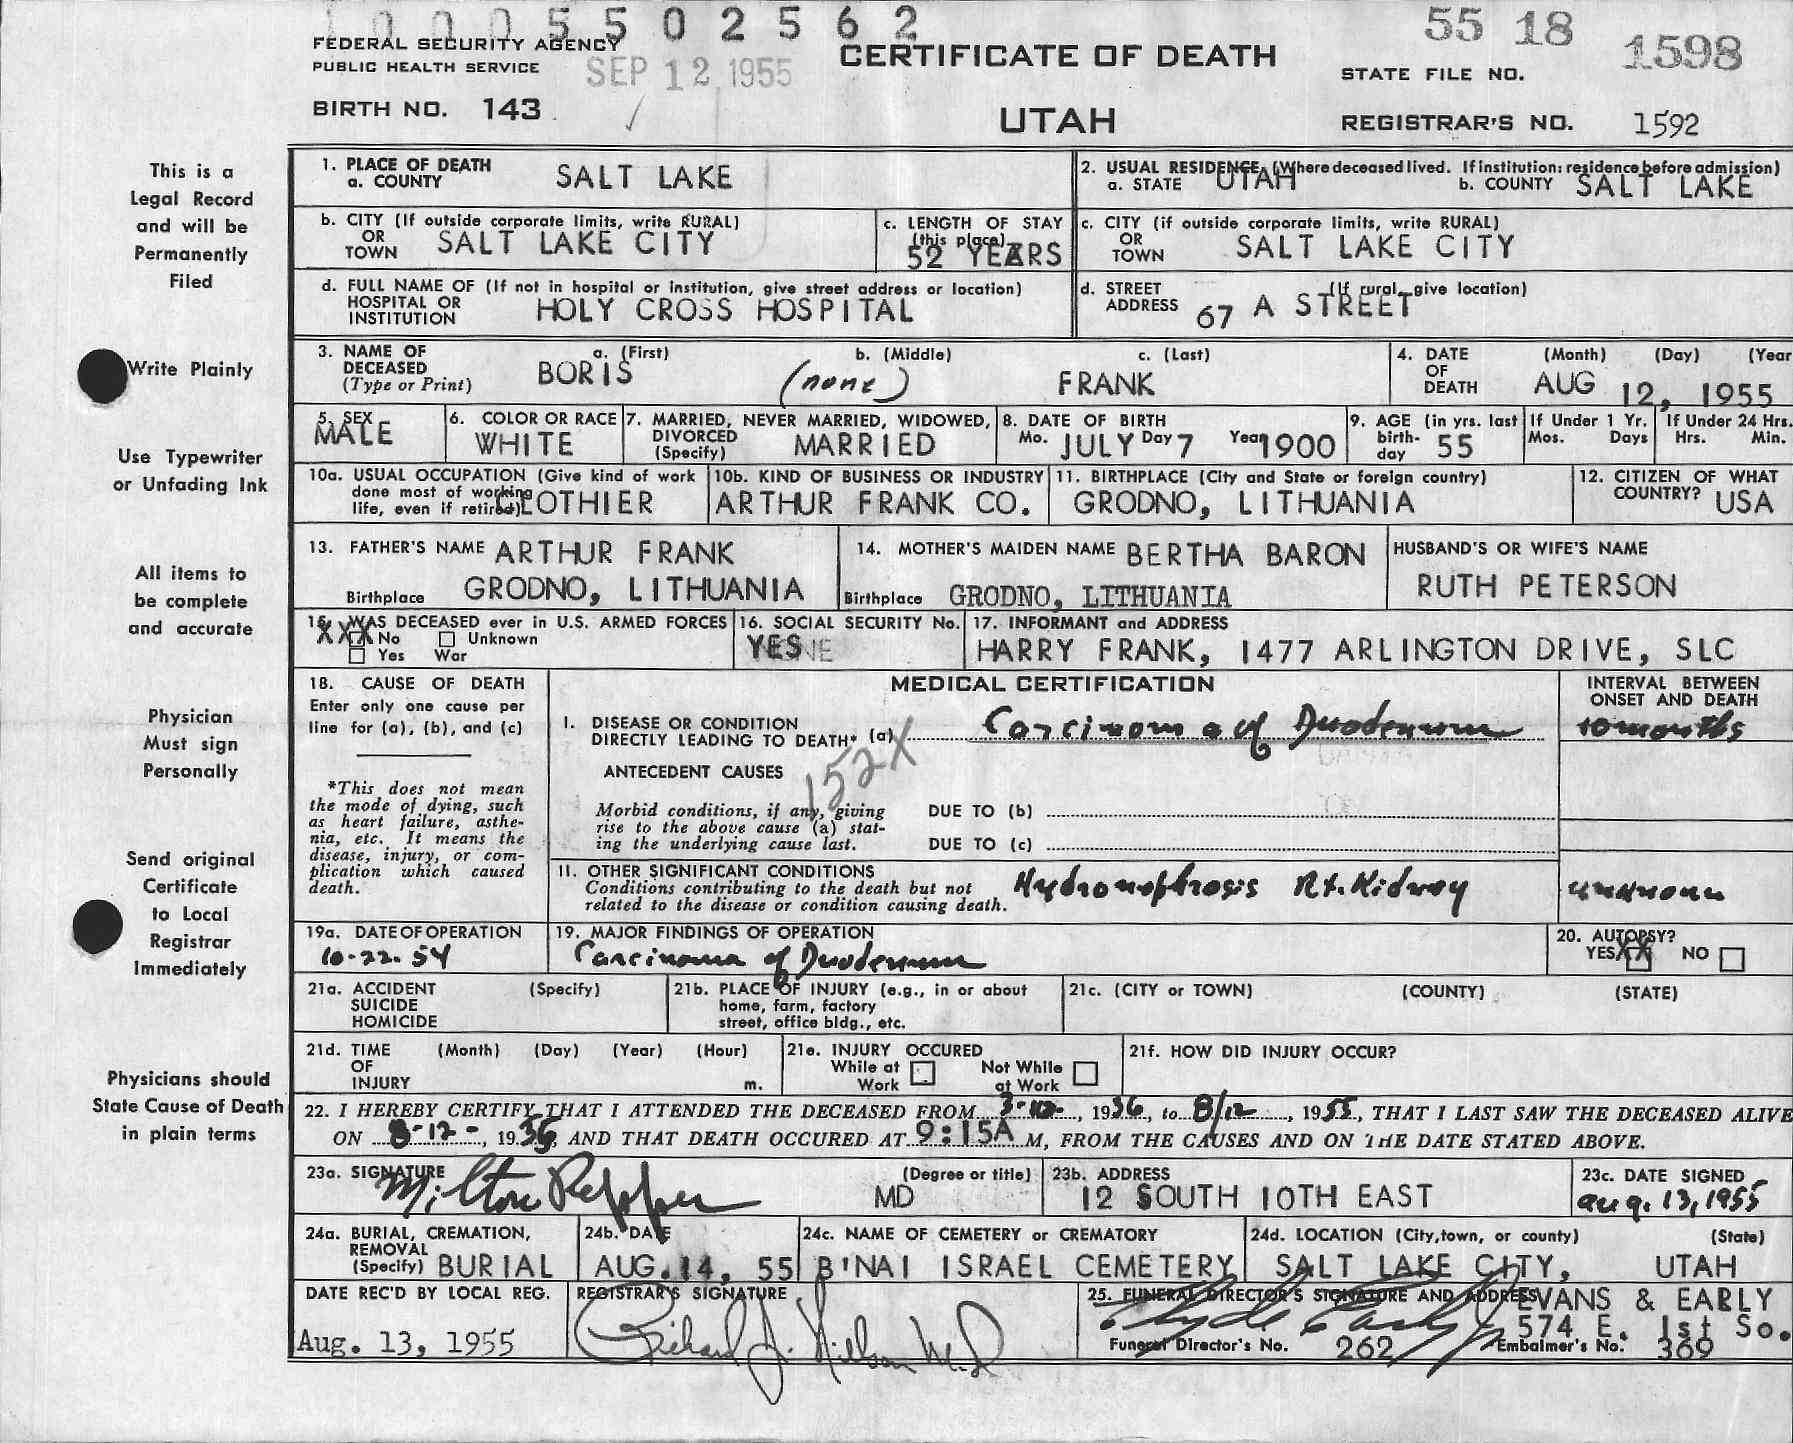 10005502562
55 18
1598
FEDERAL SECURITY AGENCY
PUBLIC HEALTH SERVICE
SEP 12 1955
CERTIFICATE OF DEATH
STATE FILE NO.
BIRTH NO. 143
UTAH
REGISTRAR'S NO. 1592
This is a
Legal Record
and will be
Permanently
Filed
Write Plainly
Use Typewriter
or Unfading Ink
All items to
be complete
and accurate
Physician
Must sign
Personally
Send original
Certificate
to Local
Registrar
Immediately
Physicians should
State Cause of Death
in plain terms
1. PLACE OF DEATH
a. COUNTY SALT LAKE
2. USUAL RESIDENCE (Where deceased lived. If institution: residence before admission)
a. STATE UTAH b. COUNTY SALT LAKE
b. CITY (If outside corporate limits, write RURAL)
OR
TOWN SALT LAKE CITY
c. LENGTH OF STAY
(this place)
52 YEARS
c. CITY (if outside corporate limits, write RURAL)
OR
TOWN SALT LAKE CITY
d. FULL NAME OF (If not in hospital or institution, give street address or location)
HOSPITAL OR
INSTITUTION HOLY CROSS HOSPITAL
d. STREET (If rural, give location)
ADDRESS 67 A STREET
3. NAME OF
DECEASED
(Type or Print)
a. (First) b. (Middle) c. (Last)
BORIS (none) FRANK
4. DATE
OF
DEATH
(Month) (Day) (Year
AUG 12, 1955
5. SEX
MALE
6. COLOR OR RACE
WHITE
7. MARRIED, NEVER MARRIED, WIDOWED,
DIVORCED
(Specify) MARRIED
8. DATE OF BIRTH
Mo. JULY Day 7 Year 1900
9. AGE (in yrs. last
birth-
day 55
If Under 1 Yr.
Mos. Days
If Under 24 Hrs.
Hrs. Min.
10a. USUAL OCCUPATION (Give kind of work
done most of working
life, even if retired) CLOTHIER
10b. KIND OF BUSINESS OR INDUSTRY
ARTHUR FRANK CO.
11. BIRTHPLACE (City and State or foreign country)
GRODNO, LITHUANIA
12. CITIZEN OF WHAT
COUNTRY? USA
13. FATHER'S NAME ARTHUR FRANK
Birthplace GRODNO, LITHUANIA
14. MOTHER'S MAIDEN NAME BERTHA BARON
Birthplace GRODNO, LITHUANIA
HUSBAND'S OR WIFE'S NAME
RUTH PETERSON
15. WAS DECEASED ever in U.S. ARMED FORCES
XXX No Unknown
Yes War
16. SOCIAL SECURITY No.
YES
17. INFORMANT and ADDRESS
HARRY FRANK, 1477 ARLINGTON DRIVE, SLC
18. CAUSE OF DEATH
Enter only one cause per
line for (a), (b), and (c)
*This does not mean
the mode of dying, such
as heart failure, asthe-
nia, etc. It means the
disease, injury, or com-
plication which caused
death.
MEDICAL CERTIFICATION
INTERVAL BETWEEN
ONSET AND DEATH
I. DISEASE OR CONDITION
DIRECTLY LEADING TO DEATH* (a) Carcinoma of Duodenum 10 months
152X
ANTECEDENT CAUSES
Morbid conditions, if any, giving
rise to the above cause (a) stat-
ing the underlying cause last.
DUE TO (b)
DUE TO (c)
II. OTHER SIGNIFICANT CONDITIONS
Conditions contributing to the death but not
related to the disease or condition causing death.
Hydronephrosis Rt. Kidney unknown
19a. DATE OF OPERATION
10-22-54
19. MAJOR FINDINGS OF OPERATION
Carcinoma of Duodenum
20. AUTOPSY?
YES XX NO
21a. ACCIDENT (Specify)
SUICIDE
HOMICIDE
21b. PLACE OF INJURY (e.g., in or about
home, farm, factory
street, office bldg., etc.
21c. (CITY or TOWN) (COUNTY) (STATE)
21d. TIME (Month) (Day) (Year) (Hour)
OF
INJURY m.
21e. INJURY OCCURED
While at Work Not While at Work
21f. HOW DID INJURY OCCUR?
22. I HEREBY CERTIFY THAT I ATTENDED THE DECEASED FROM 3-10-, 1936, to 8/12, 1955, THAT I LAST SAW THE DECEASED ALIVE
ON 8-12-, 1955, AND THAT DEATH OCCURED AT 9:15A M, FROM THE CAUSES AND ON THE DATE STATED ABOVE.
23a. SIGNATURE (Degree or title)
Milton Pepper MD
23b. ADDRESS
12 SOUTH 10TH EAST
23c. DATE SIGNED
Aug. 13, 1955
24a. BURIAL, CREMATION,
REMOVAL
(Specify) BURIAL
24b. DATE
AUG. 14, 55
24c. NAME OF CEMETERY or CREMATORY
B'NAI ISRAEL CEMETERY
24d. LOCATION (City, town, or county) (State)
SALT LAKE CITY, UTAH
DATE REC'D BY LOCAL REG.
Aug. 13, 1955
REGISTRAR'S SIGNATURE
Richard J. Nilson M.D
25. FUNERAL DIRECTOR'S SIGNATURE AND ADDRESS EVANS & EARLY
574 E. 1st So.
Funeral Director's No. 262 Embalmer's No. 369